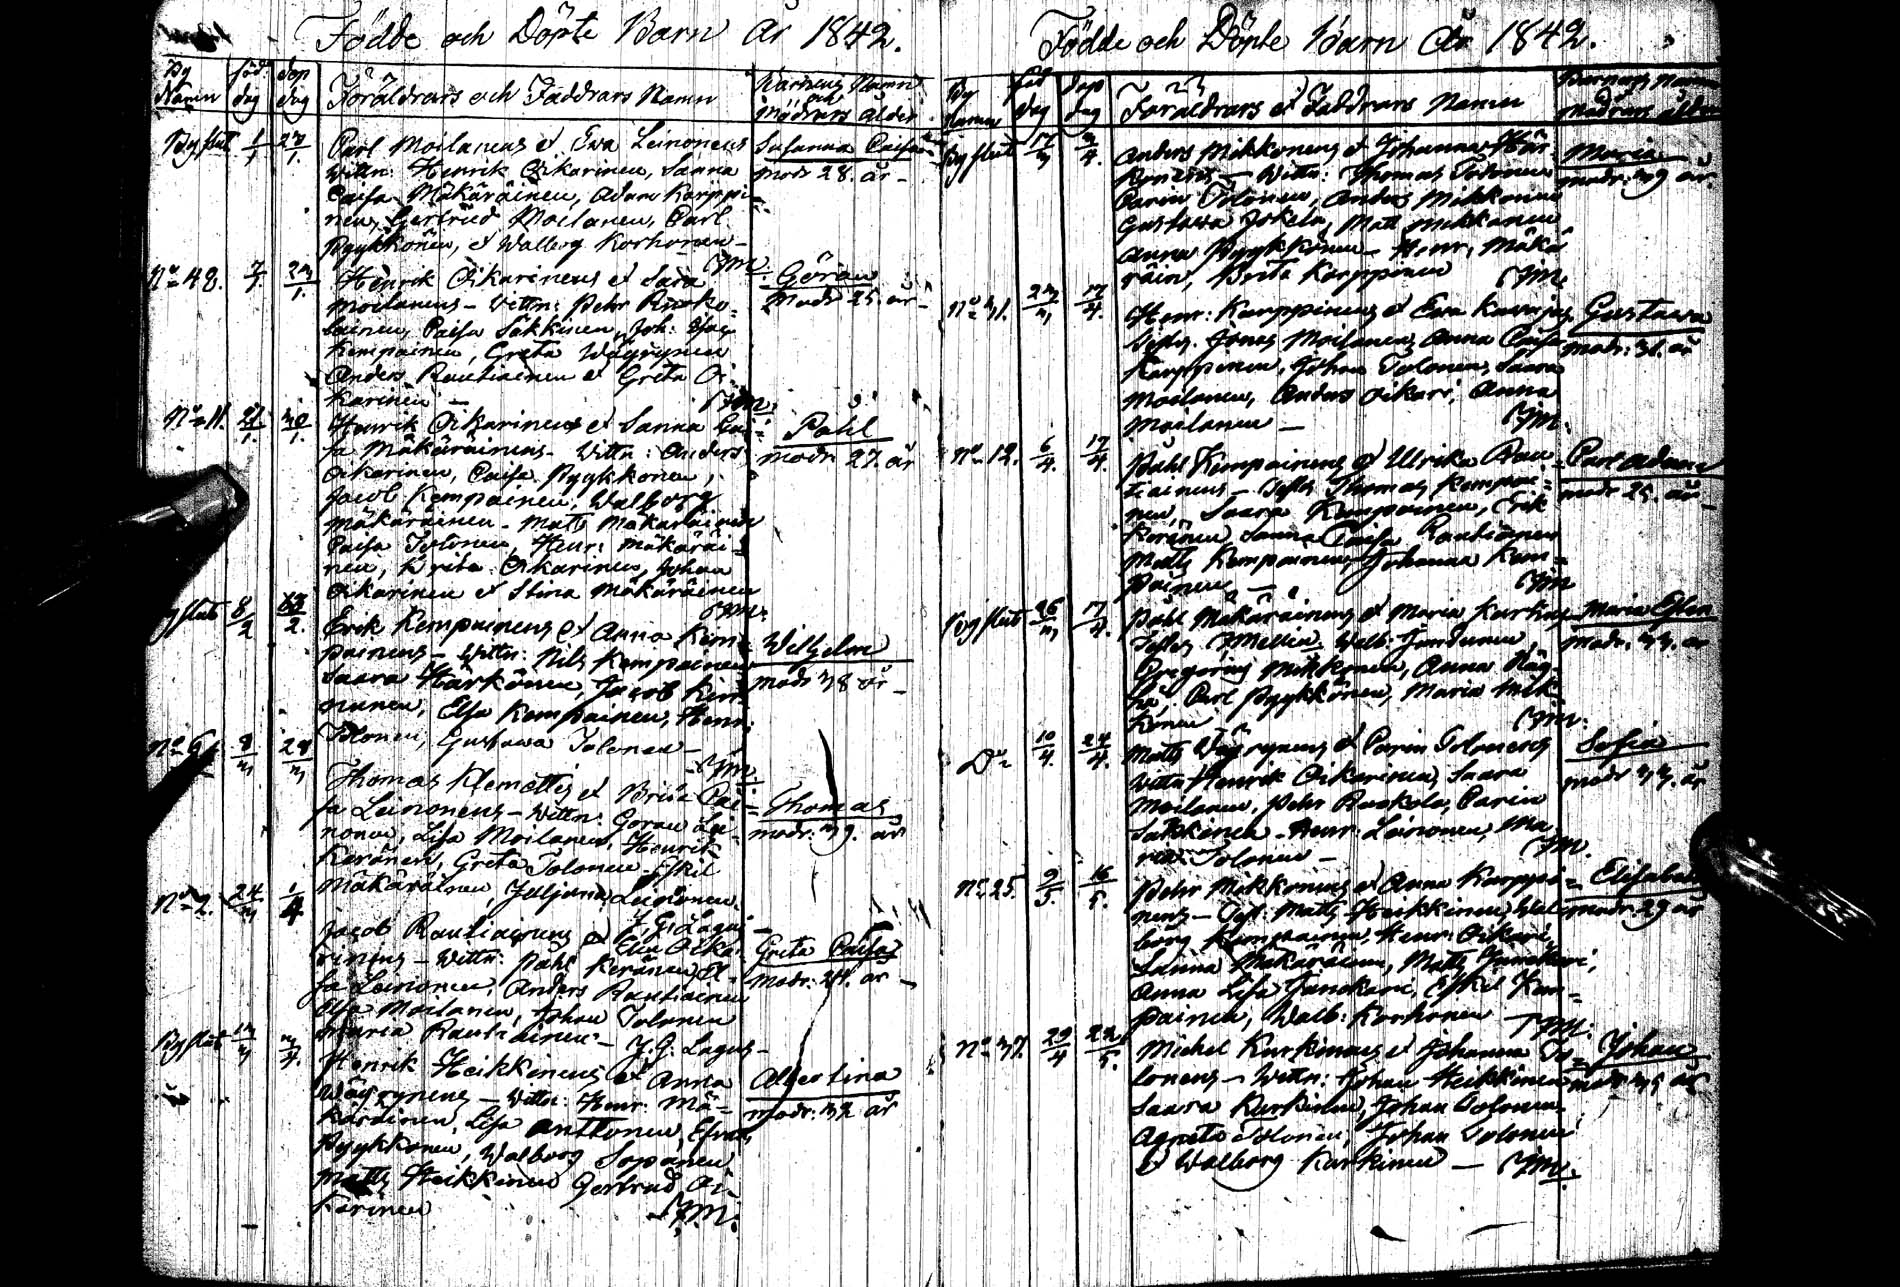 Födde och Döpte Barn År 1842.
By Namn
föd. dag
döp dag
Föräldrars och Faddrars Namn
Barnens Namn och Mödrars ålder
Byslut 1/1 23/1.
Carl Moilanens et Ewa Leinonens
Wittn: Henrik Oikarinen, Sanna
Caisa Mäkäräinen, Adam Karppi=
nen, Gertrud Moilanen, Carl
Pyykkönen, et Walborg Korhonen –
Susanna Caisa
modr 28. år –
No 48. 7/1. 23/1.
Henrik Oikarinens et Sara
Moilanens – Wittn: Pehr Rusko=
lainen, Caisa Säkkinen, Joh: Isac
Kempainen, Greta Wäyrynen
Anders Rautiainen et Greta Oi=
karinen –
Göran
modr 25 år –
No 11. 21/1. 30/1.
Henrik Oikarinens et Sanna Cai=
sa Mäkäräinens – Wittn: Anders
Oikarinen, Caisa Pyykkönen,
Jacob Kempainen, Walborg
Mäkäräinen – Matts Mäkäräinen
Caisa Tolonen, Henr: Mäkäräi=
nen, Brita Oikarinen, Johan
Oikarinen et Stina Mäkäräinen
Påhl
modr 27. år
Byslut 8/2 13/2.
Erik Kempainens et Anna Kem=
painens – Wittn: Nils Kempainen
Saara Härkönen, Jacob Kin=
nunen, Elsa Kempainen, Henr:
Tolonen, Gustawa Tolonen –
Wilhelm
modr 38 år –
No 6 8/3 28/3
Thomas Klemettis et Brita Cai=
sa Leinonens – Wittn: Göran Lei=
nonen, Lisa Moilanen, Henrik
Keränen, Greta Tolonen, Eskil
Mäkäräinen, Juljana Leinonen.
J. G. Lagus –
Thomas
modr: 39. år
No 2. 24/3 1/4
Jacob Rautiainens et Elin Oika=
rinens – Wittn: Påhl Keränen, El=
sa Leinonen, Anders Rautiainen
Elsa Moilanen, Johan Tolonen
Maria Rautiainen – J. G. Lagus –
Greta Caisa
modr: 24. år –
Byslut 13/3 3/4.
Henrik Heikkinens et Anna
Wäyrynens – Wittn: Henr: Mä=
käräinen, Lisa Anttonen, Efraim
Pyykkönen, Walborg Sopanen
Matts Heikkinen Gertrud Oi=
karinen
Albertina
modr: 32 år
Födde och Döpte Barn År 1842.
By Namn
föd dag
döp dag
Föräldrars et Faddrars Namn
Barnens Namn
Mödrars ålder
Byslut 17/3 3/4.
Anders Mikkonens et Johanna Här=
könens – Wittn: Thomas Tolonen
Carin Tolonen, Anders Mikkonen
Gustawa Jokela, Matts Mikkonen
Anna Pyykkönen – Henr: Mäkä=
räin, Brita Karppinen
Maria
modr: 39 år.
No 31. 23/3 17/4.
Henr: Karppinens et Ewa Kaurins
Testes. Jonas Moilanen, Anna Caisa
Karppinen, Johan Tolonen, Saara
Moilanen, Anders Oikari, Anna
Moilanen –
Gustawa
modr: 31. år
No 12. 6/4. 17/4.
Påhl Kempainens et Ulrika Rau=
tiainens – Testes Thomas Kempai=
nen, Saara Kempainen, Erik
Keränen, Sanna Caisa Rautiainen
Matts Kempainen, Johanna Kem=
painen –
Carl Adam
modr 25. år –
Byslut 26/3 17/4.
Påhl Mäkäräinens et Maria Kurkins
Gregorius Mikkonen, Anna Häg=
Carl Pyykkönen, Maria Mik=
konen
Maria Elin
modr. 33. år
Do 10/4. 24/4.
Matts Wäyrynens et Carin Tolonens
Wittn Henrik Oikarinen, Saara
Moilanen, Pehr Ruskola, Carin
Säkkinen – Henr: Leinonen, Ma
ria Tolonen –
Sofia
modr 33. år
No 25. 9/5. 16/5.
Pehr Mikkonens et Anna Karppi=
nens – Test: Matts Heikkinen, Wal
borg Kempainen, Henr: Oikari,
Sanna Mäkäräinen, Matts Junckari,
Anna Lisa Junckari, Eskil Kem=
painen, Walb: Korhonen –
Elisabet
modr. 29 år
No 37. 29/4 22/5.
Michel Kurkinens et Johanna To=
lonens – Wittn: Johan Heikkinen
Saara Kurkinen, Johan Tolonen
Agneta Tolonen, Johan Tolonen
et Walborg Kurkinen –
Johan
modr 35 år